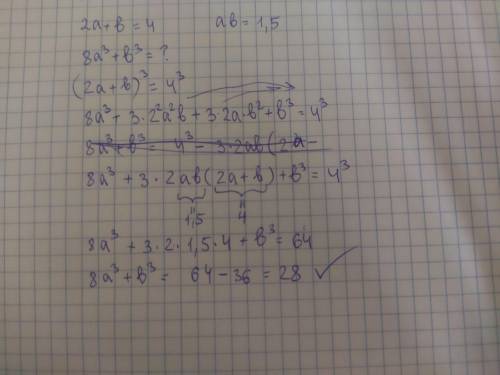 2a+b=4 ab=1,5
8a³+b³=?
(2a+b)³=4³
8a³+3·2²a²b+3·2a·b²+b³=4³
8a³+b³= 4³-3·2ab(2a-
8a³+3·2ab(2a+b)+b³=4³
1,5 4
8a³+3·2·1,5·4+b³=64
8a³+b³= 64-36=28 ✓